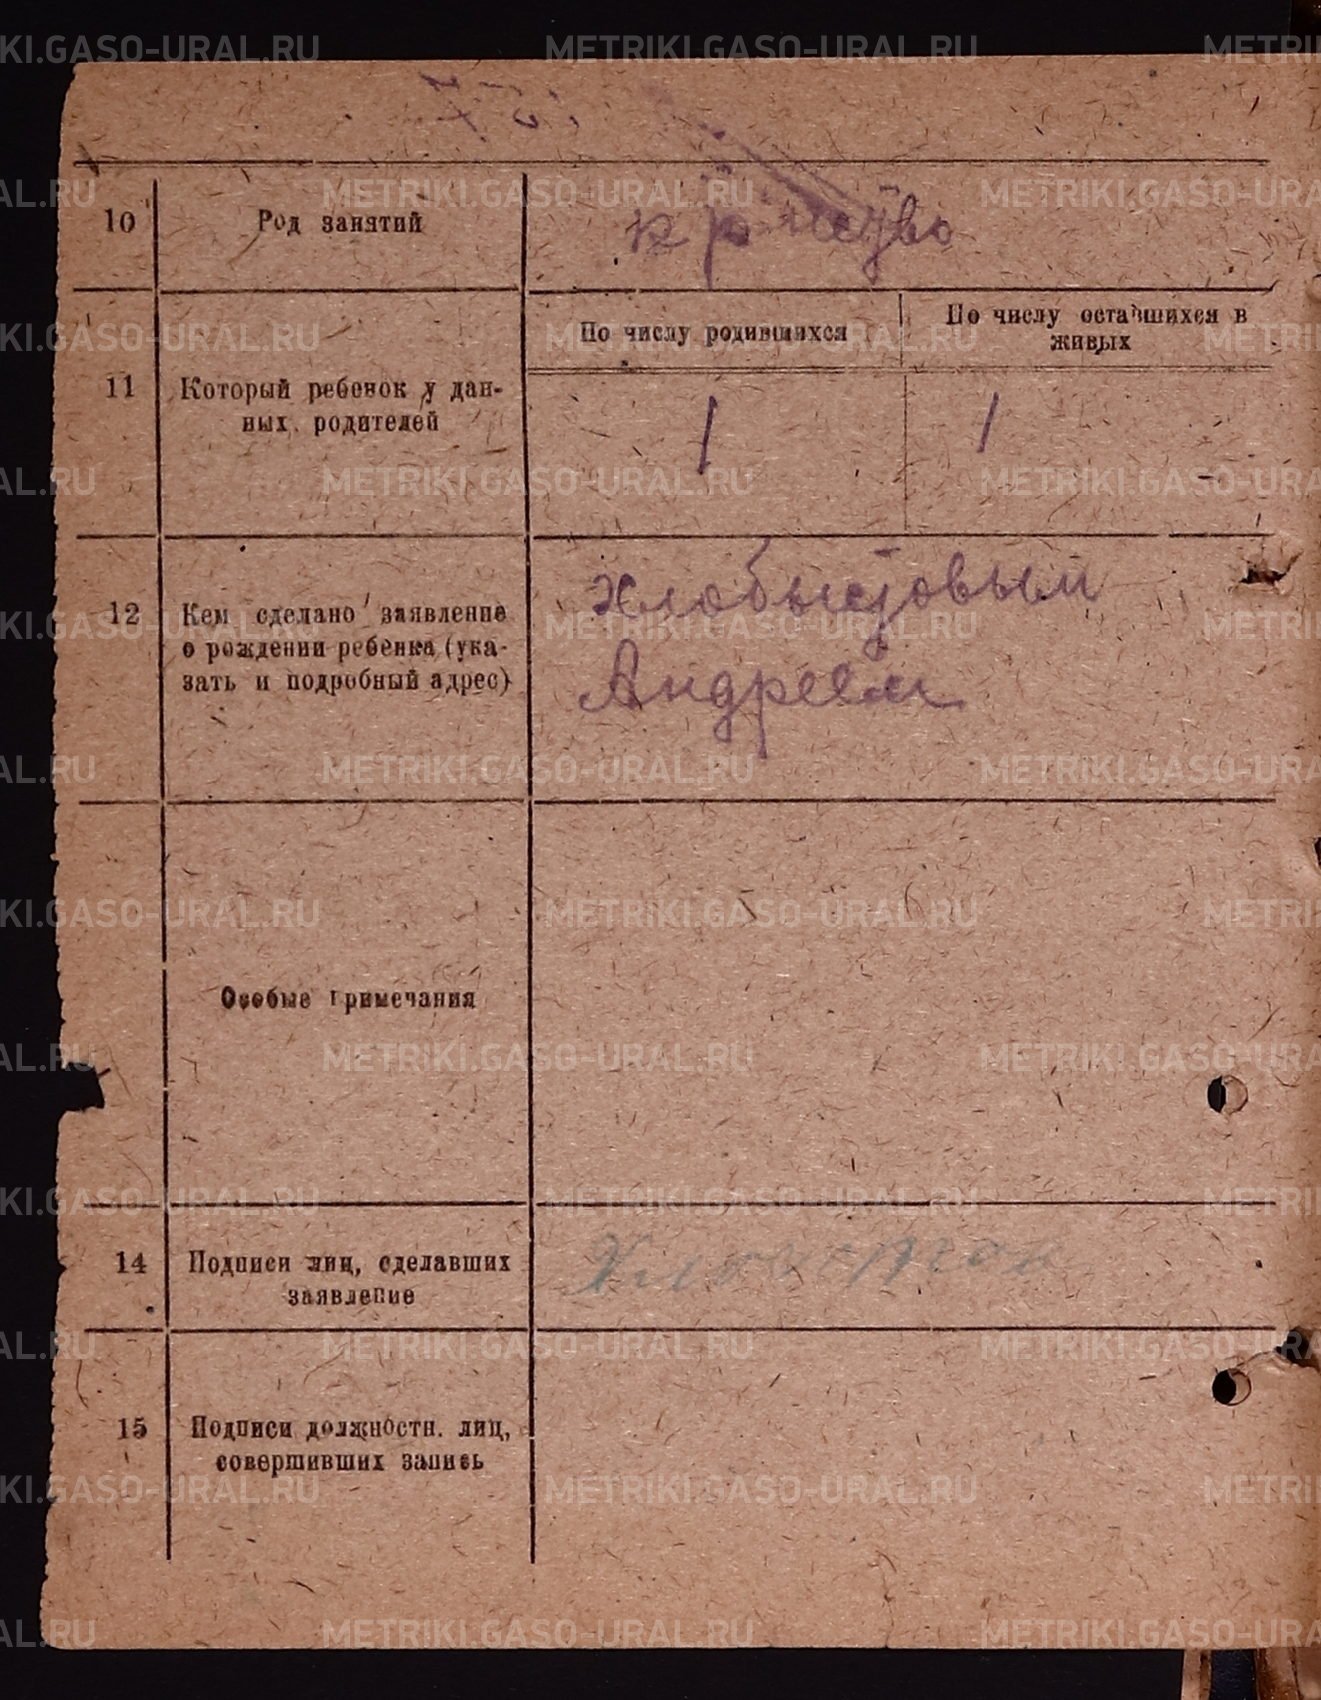 10
Род занятий
11
Который ребенок у дан-
ных родителей
По числу родившихся
По числу оставшихся в
живых
1
1
12
Кем сделано заявление
о рождении ребенка (ука-
зать и подробный адрес)
Хлобыстовым
Андреем
Особые примечания
14
Подписи лиц, сделавших
заявление
15
Подписи должностн. лиц,
совершивших запись
METRIKI.GASO-URAL.RU